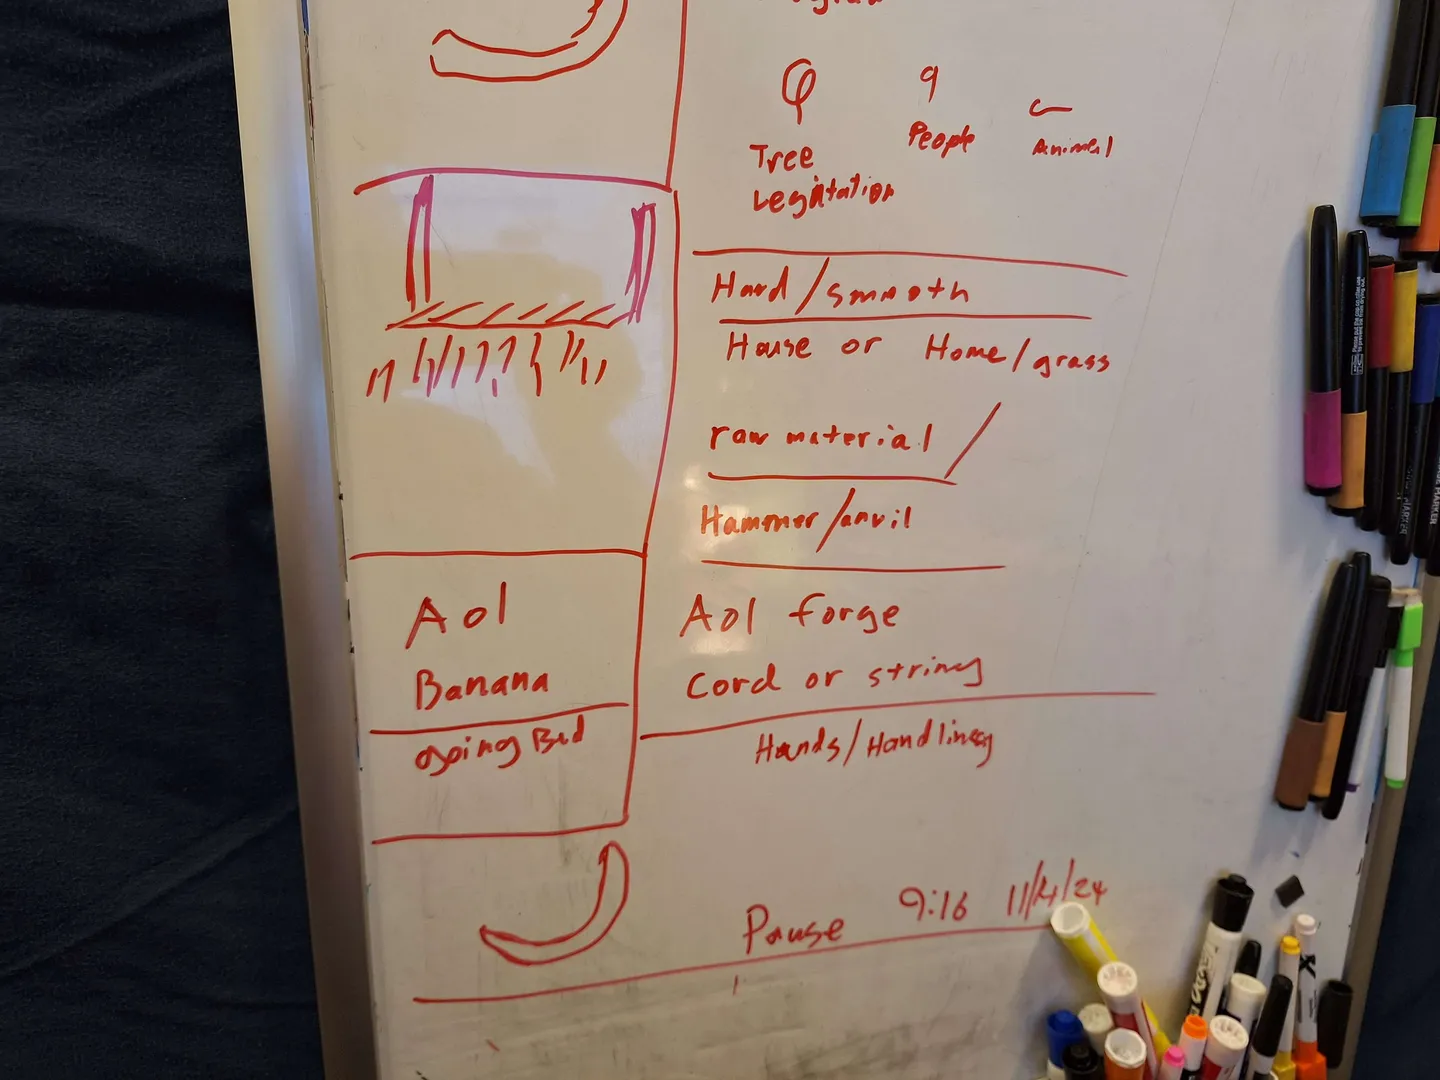 Tree
Legitation
People
Animal
Hard/smooth
House or Home/grass
raw material /
Hammer/anvil
Aol
Aol forge
Banana
Cord or string
going Bad
Hands/Handling
Pause 9:16 11/4/24